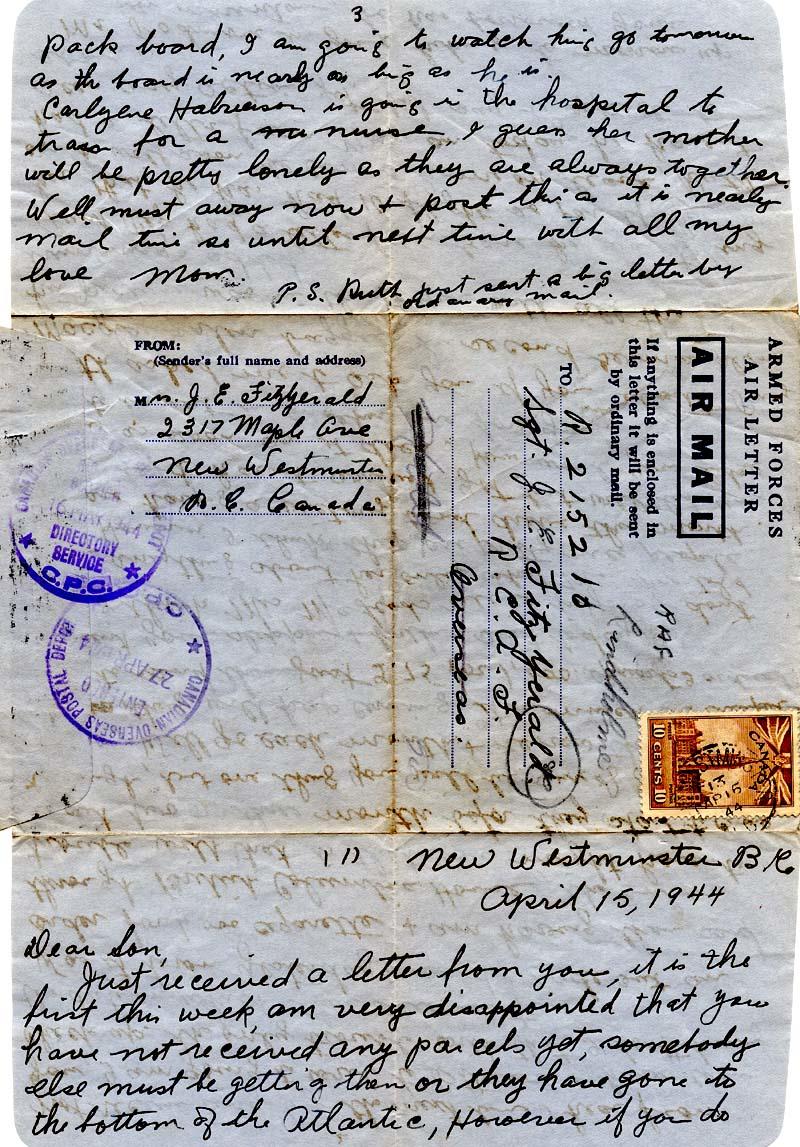 3
Pack board, I am going to watch him go tomorrow
as the board is nearly as big as he is.
Carlyene is going in the hospital to
train for a nurse, I guess her mother
will be pretty lonely as they are always together.
Well must away now + post this as it is nearly
mail time so until next time with all my
love Mom.
P.S. Ruth just sent a big letter by
ordinary mail.
FROM:
(Sender's full name and address)
Mrs. J. E. Fitzgerald
2317 Maple Ave
New Westminster
B.C. Canada
DIRECTORY
SERVICE
C.P.C.
CANADIAN OVERSEAS POSTAL DEPOT
27 APR 1944
ARMED FORCES
AIR LETTER
AIR MAIL
If anything is enclosed in
this letter it will be sent
by ordinary mail.
TO
R.215218
Sgt. J. E. Fitzgerald
R.C.A.F.
Overseas.
CANADA
10 CENTS 10
AP 15
44
1)
New Westminster B.C.
April 15, 1944
Dear Son,
Just received a letter from you, it is the
first this week, am very disappointed that you
have not received any parcels yet, somebody
else must be getting them or they have gone to
the bottom of the Atlantic, However if you do